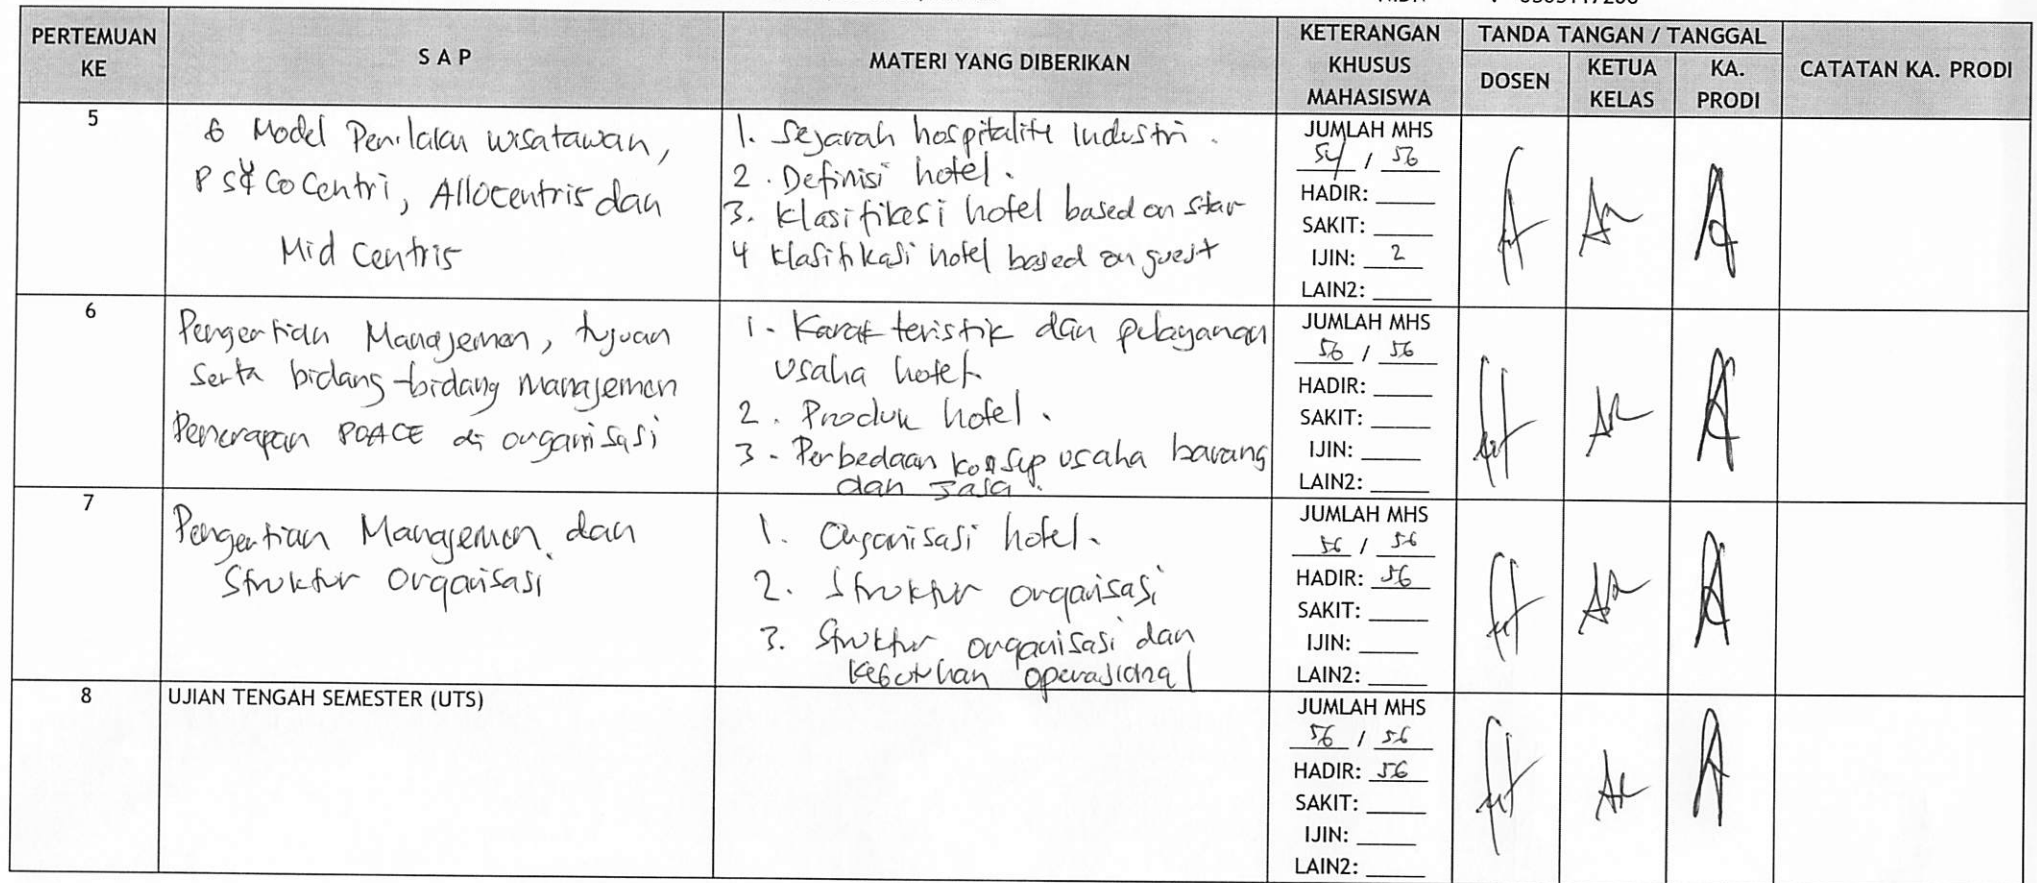 PERTEMUAN KE
S A P
MATERI YANG DIBERIKAN
KETERANGAN KHUSUS MAHASISWA
TANDA TANGAN / TANGGAL
DOSEN
KETUA KELAS
KA. PRODI
CATATAN KA. PRODI
5
6 Model Penilaian wisatawan,
Mid Centris
1. Sejarah hospitalite Industri.
2. Definisi hotel.
3. Klasifikesi hotel based on star
4 Klasifikasi hotel based on guest
JUMLAH MHS
54 / 56
HADIR:
SAKIT:
IJIN: 2
LAIN2:
6
Pengertian Manajemen, tujuan
serta bidang-bidang manajemen
Penerapan POACE di organisasi
1. Karakteristik dan pelayanan
usaha hotel.
2. Produk hotel.
3. Perbedaan konsep usaha barang
dan Jasa.
JUMLAH MHS
56 / 56
HADIR:
SAKIT:
IJIN:
LAIN2:
7
Pengertian Manajemen dan
Struktur Organisasi
1. Organisasi hotel.
2. Struktur organisasi
3. Struktur organisasi dan
Kebutuhan operasional
JUMLAH MHS
56 / 56
HADIR: 56
SAKIT:
IJIN:
LAIN2:
8
UJIAN TENGAH SEMESTER (UTS)
JUMLAH MHS
56 / 56
HADIR: 56
SAKIT:
IJIN:
LAIN2: